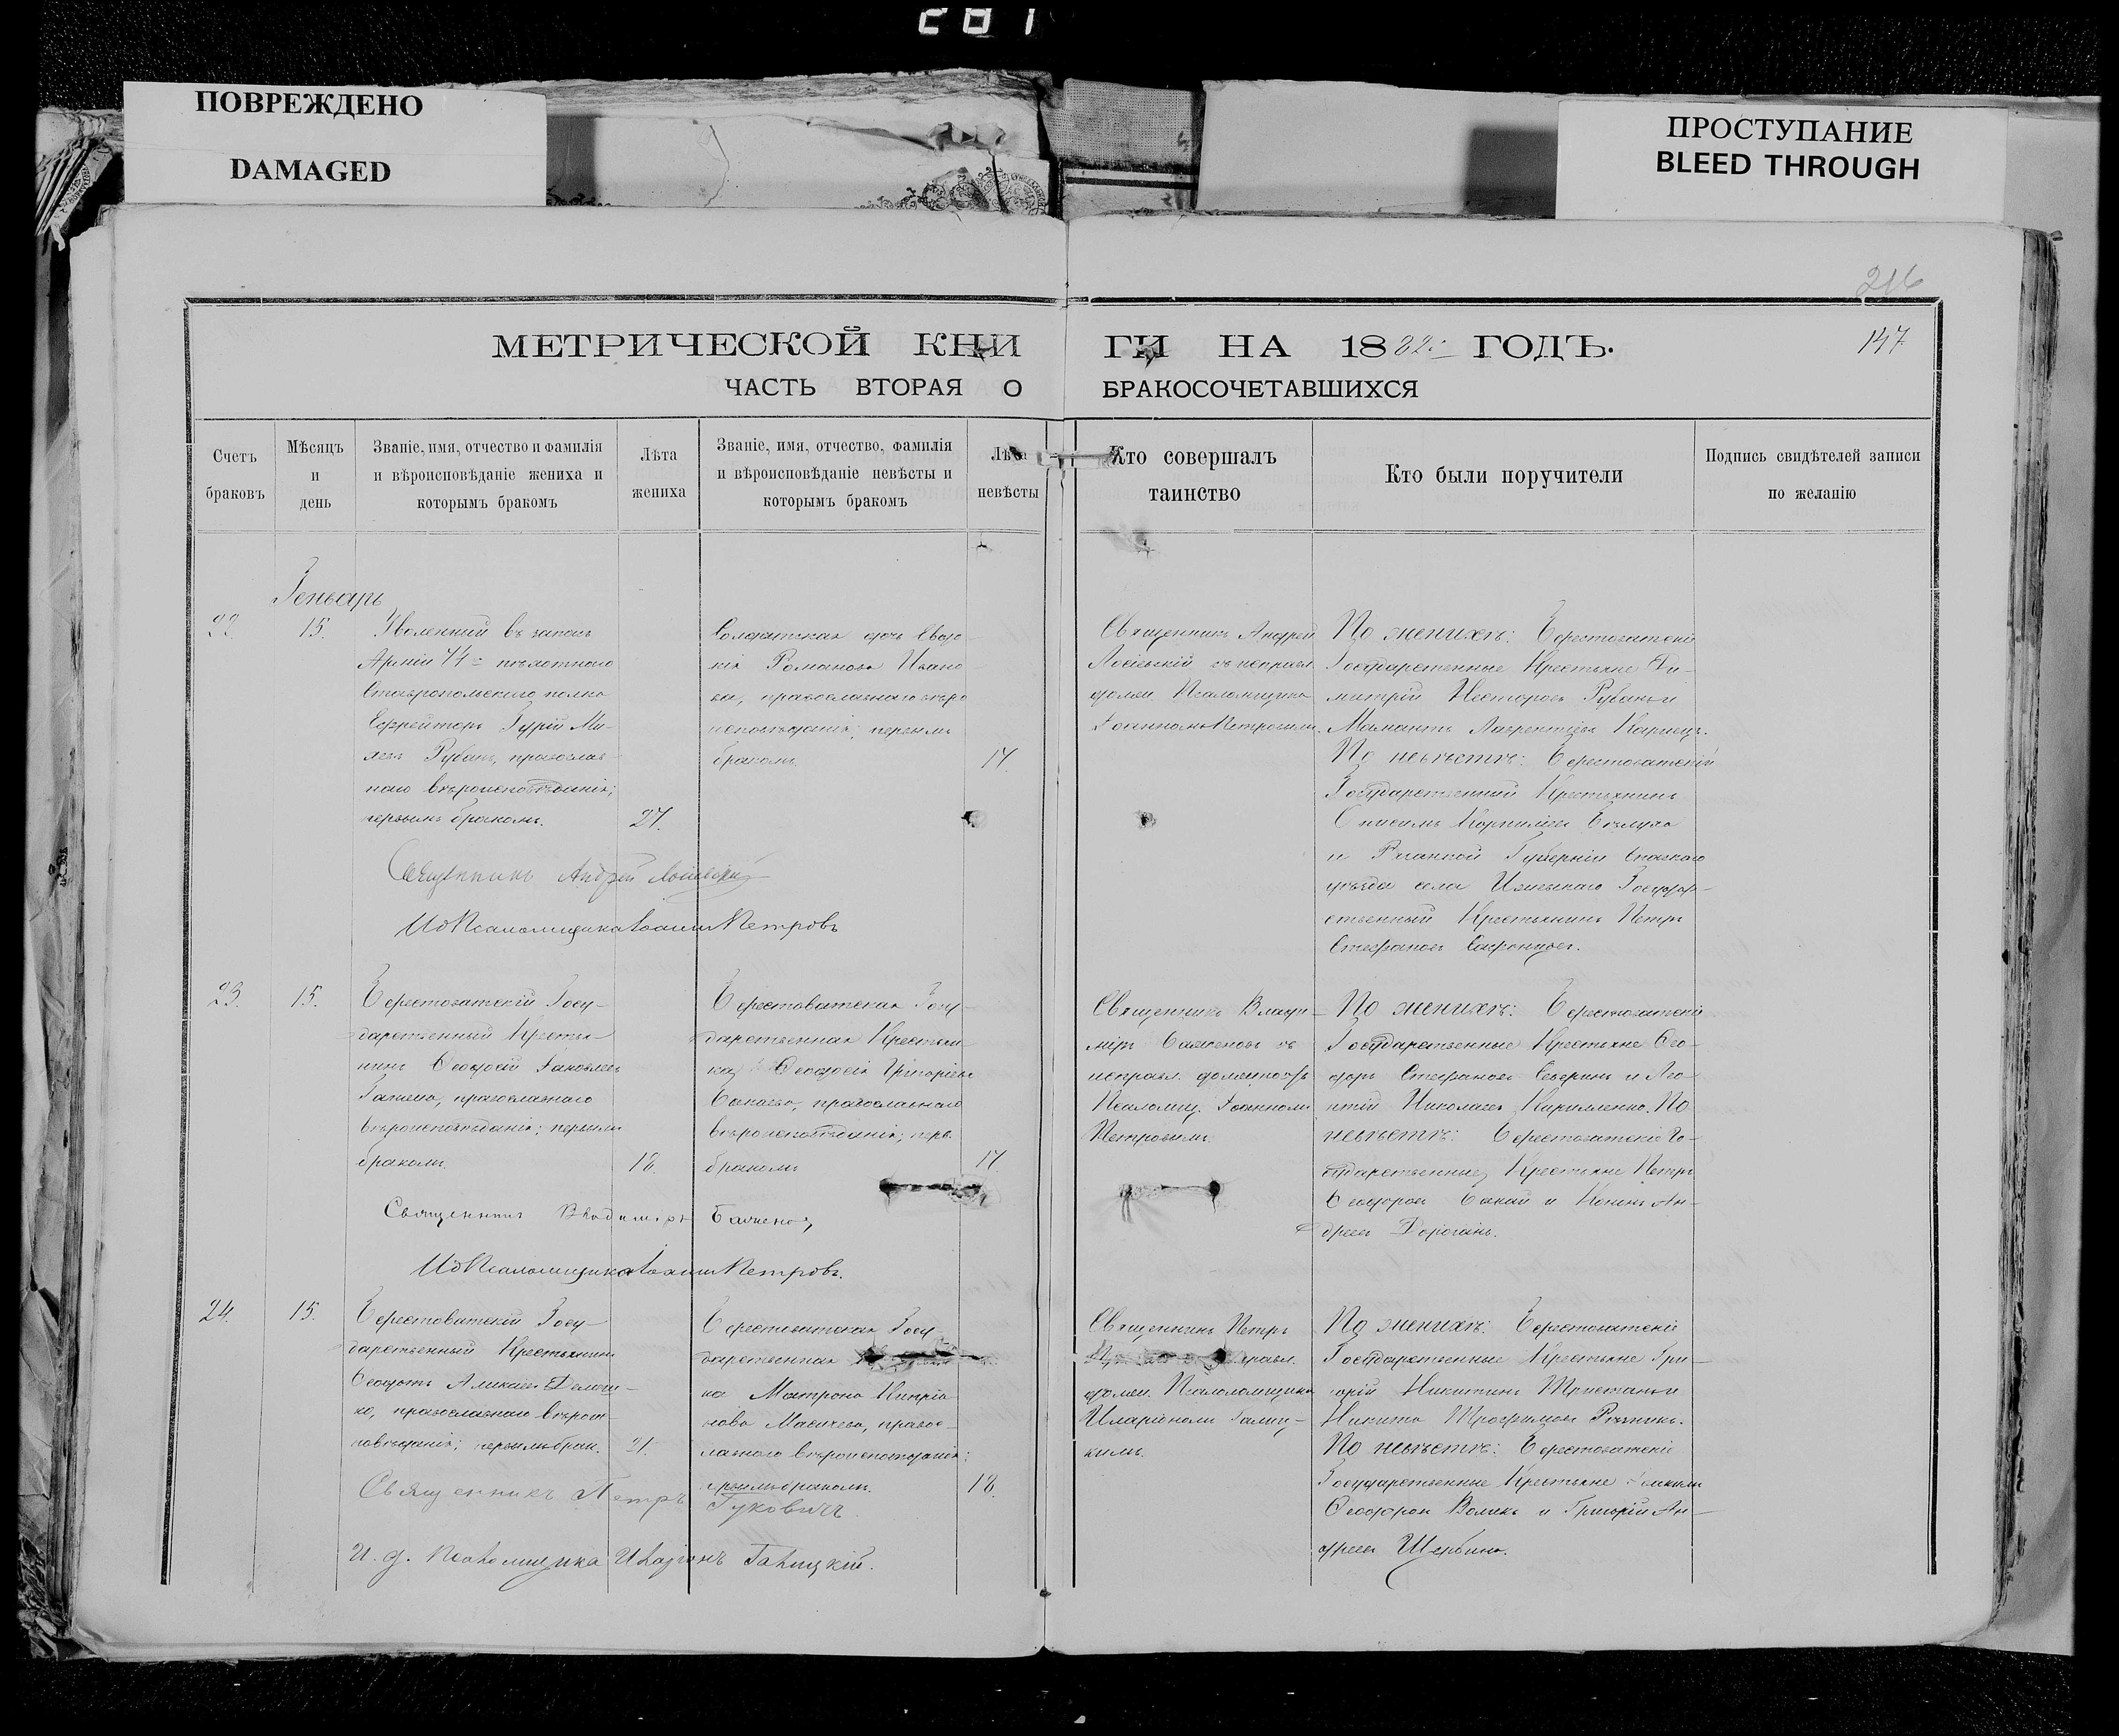 281
ПОВРЕЖДЕНО
DAMAGED
ПРОСТУПАНИЕ
BLEED THROUGH
216
147
МЕТРИЧЕСКОЙ КНИГИ НА 1882 ГОДЪ.
ЧАСТЬ ВТОРАЯ О БРАКОСОЧЕТАВШИХСЯ
Счетъ браковъ
Мѣсяцъ и день
Званіе, имя, отчество и фамилія и вѣроисповѣданіе жениха и которымъ бракомъ
Лѣта жениха
Званіе, имя, отчество, фамилія и вѣроисповѣданіе невѣсты и которымъ бракомъ
Лѣта невѣсты
Кто совершалъ таинство
Кто были поручители
Подпись свидѣтелей записи по желанію
Геньварь
22.
15.
Уволенный въ запасъ
Арміи 74 пѣхотнаго
Ставропольскаго полка
Ефрейторъ Гурій Ми-
хеевъ Рубанъ, православ-
наго вѣроисповѣданія;
первымъ бракомъ.
27.
Солдатская дочь Евдо-
кія Романова Ивано
ва, православнаго вѣро
исповѣданія; первымъ
бракомъ.
17.
Священникъ Андрей
съ исправл.
должн. Псаломщика
Іоанномъ Петровымъ.
По женихѣ: Берестоватскіе
Государственные Крестьяне Ди-
митрій Несторовъ Рубанъ и
Мамантъ Лаврентіевъ
По невѣстѣ: Берестоватскій
Государственный Крестьянинъ
Онисимъ Корниліевъ
и Губерніи Спаскаго
уѣзда села Государ-
ственный Крестьянинъ Петръ
Стефановъ
Священникъ Андрей
И д Псаломщика Іоаннъ Петровъ
23.
15.
Берестоватскій Госу-
дарственный Крестья-
нинъ Феодосій Яковлевъ
православнаго
вѣроисповѣданія; первымъ
бракомъ.
18.
Берестоватская Госу-
дарственная Крестьян-
ка Феодосія Григоріева
Бакаева, православнаго
вѣроисповѣданія; перв.
бракомъ
17.
Священникъ Влади-
міръ Баженовъ съ
исправл. должность
Псаломщ. Іоанномъ
Петровымъ.
По женихѣ: Берестоватскіе
Государственные Крестьяне Фео-
доръ Стефановъ Северинъ и Ле-
нтій Николаевъ Кириленко. По
невѣстѣ: Берестоватскіе Го-
сударственные Крестьяне Петръ
Феодоровъ Бакай и Кононъ Ан-
дреевъ
Священникъ Владиміръ Баженовъ
И д Псаломщика Іоаннъ Петровъ.
24.
15.
Берестоватскій Госу-
дарственный Крестьянинъ
Феодотъ
православнаго вѣроис-
повѣданія; первымъ брак.
21.
Берестоватская Госу-
дарственная
ка Матрона Кипріа
нова православ-
лавнаго вѣроисповѣданія;
первымъ бракомъ.
18.
Священникъ Петръ
исправл.
должн. Псаломщика
Иларіономъ Галиц-
кимъ.
По женихѣ: Берестоватскіе
Государственные Крестьяне Гри-
горій Никитинъ и
Никита Трофимовъ Рѣзникъ.
По невѣстѣ: Берестоватскіе
Государственные Крестьяне
Феодоровъ Воликъ и Григорій Ан-
дреевъ Щербина.
Священникъ Петръ Гуковичъ
И. д. Псаломщика Иларіонъ Галицкій.